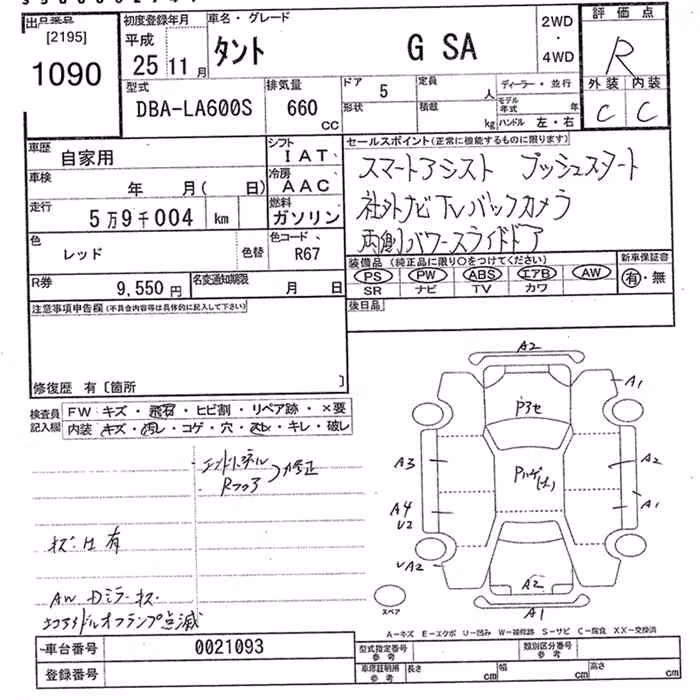 出品番号
[2195]
1090
初度登録年月
平成
25 11 月
車名・グレード
タント G SA
2WD
・
4WD
評価点
R
外装 内装
C C
型式
DBA-LA600S
排気量
660
CC
ドア
5
定員
人
形状
積載
kg
ディーラー・並行
モデル年式
年
ハンドル 左・右
車歴
自家用
シフト
IAT
車検
年 月( 日)
冷房
AAC
走行
5万9千004 km
燃料
ガソリン
色
レッド
色替
色コード
R67
R券
9,550 円
名変通知期限
月 日
セールスポイント(正常に機能するものに限ります)
スマートアシスト プッシュスタート
社外ナビTVバックカメラ
両側パワースライドドア
装備品(純正品に限り○をつけてください)
PS PW ABS エアB AW
SR ナビ TV カワ
新車保証書
有・無
後日品
注意事項申告欄(不具合内容等は具体的に記入して下さい)
修復歴 有〔箇所 〕
検査員
記入欄
FW キズ・飛石・ヒビ割・リペア跡・×要
内装 キズ・汚レ・コゲ・穴・スレ・キレ・破レ
Rフロア
修正
有
AW Dミラーキズ
エコアイドルオフランプ点滅
A2
A1
P3セ
A3
A2
A4
U2
A1
A2
A2
A1
スペア
A-キズ E-エクボ U-凹み W-補修跡 S-サビ C-腐食 XX-交換済
車台番号
0021093
登録番号
型式指定番号
参考
類別区分番号
参考
車庫証明用
参考
長さ
cm
幅
cm
高さ
cm